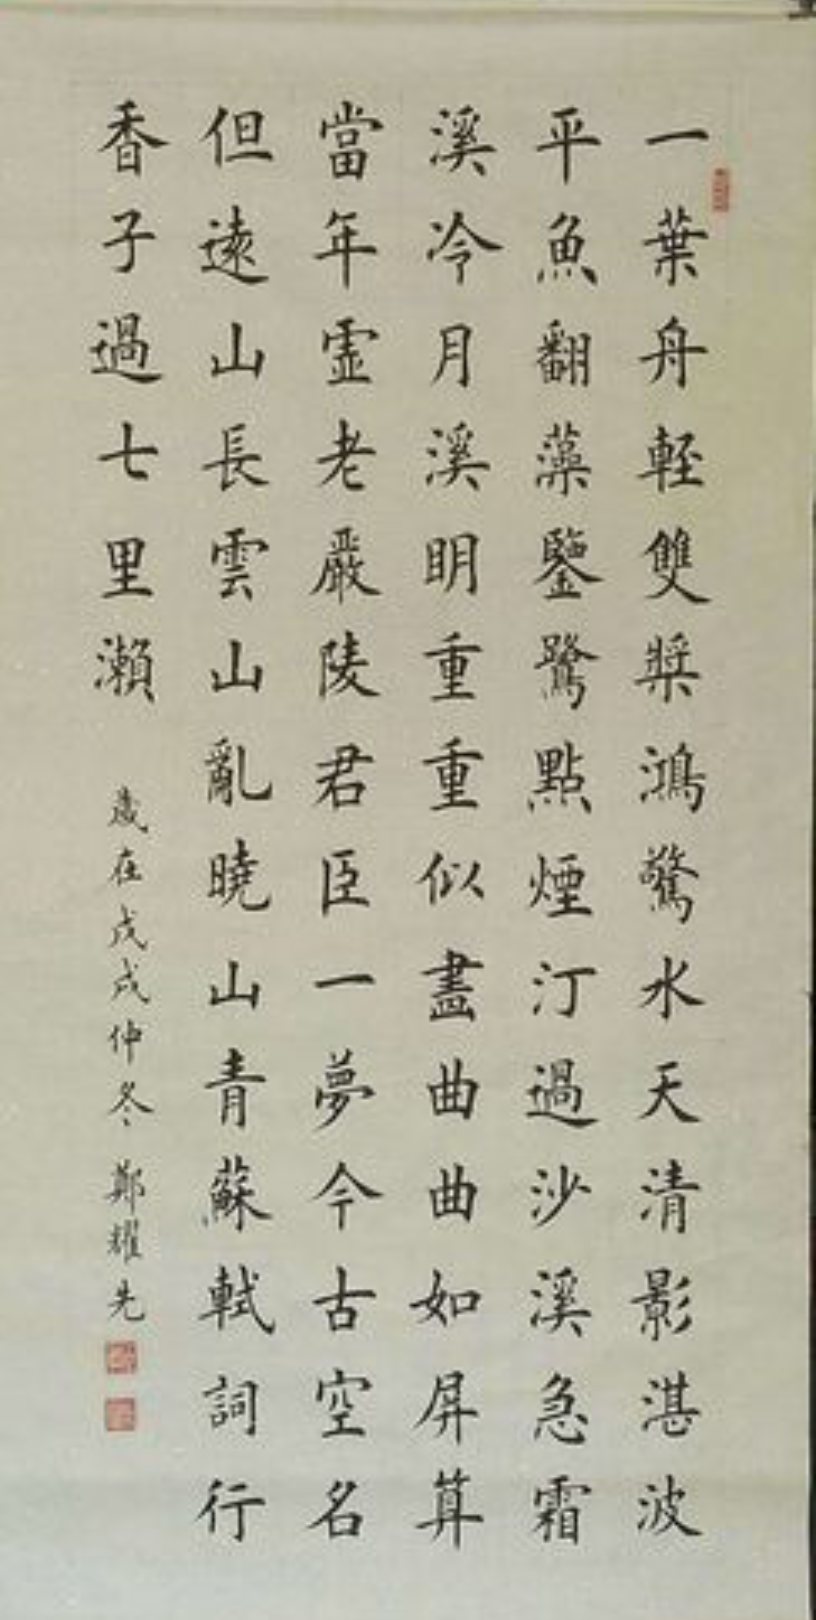 一葉舟輕雙槳鴻驚水天清影湛波
平魚翻藻鑒鷺點煙汀過沙溪急霜
溪冷月溪明重重似畫曲曲如屏算
當年虛老嚴陵君臣一夢今古空名
但遠山長雲山亂曉山青蘇軾詞行
香子過七里瀨
歲在戊戌仲冬 鄭耀先